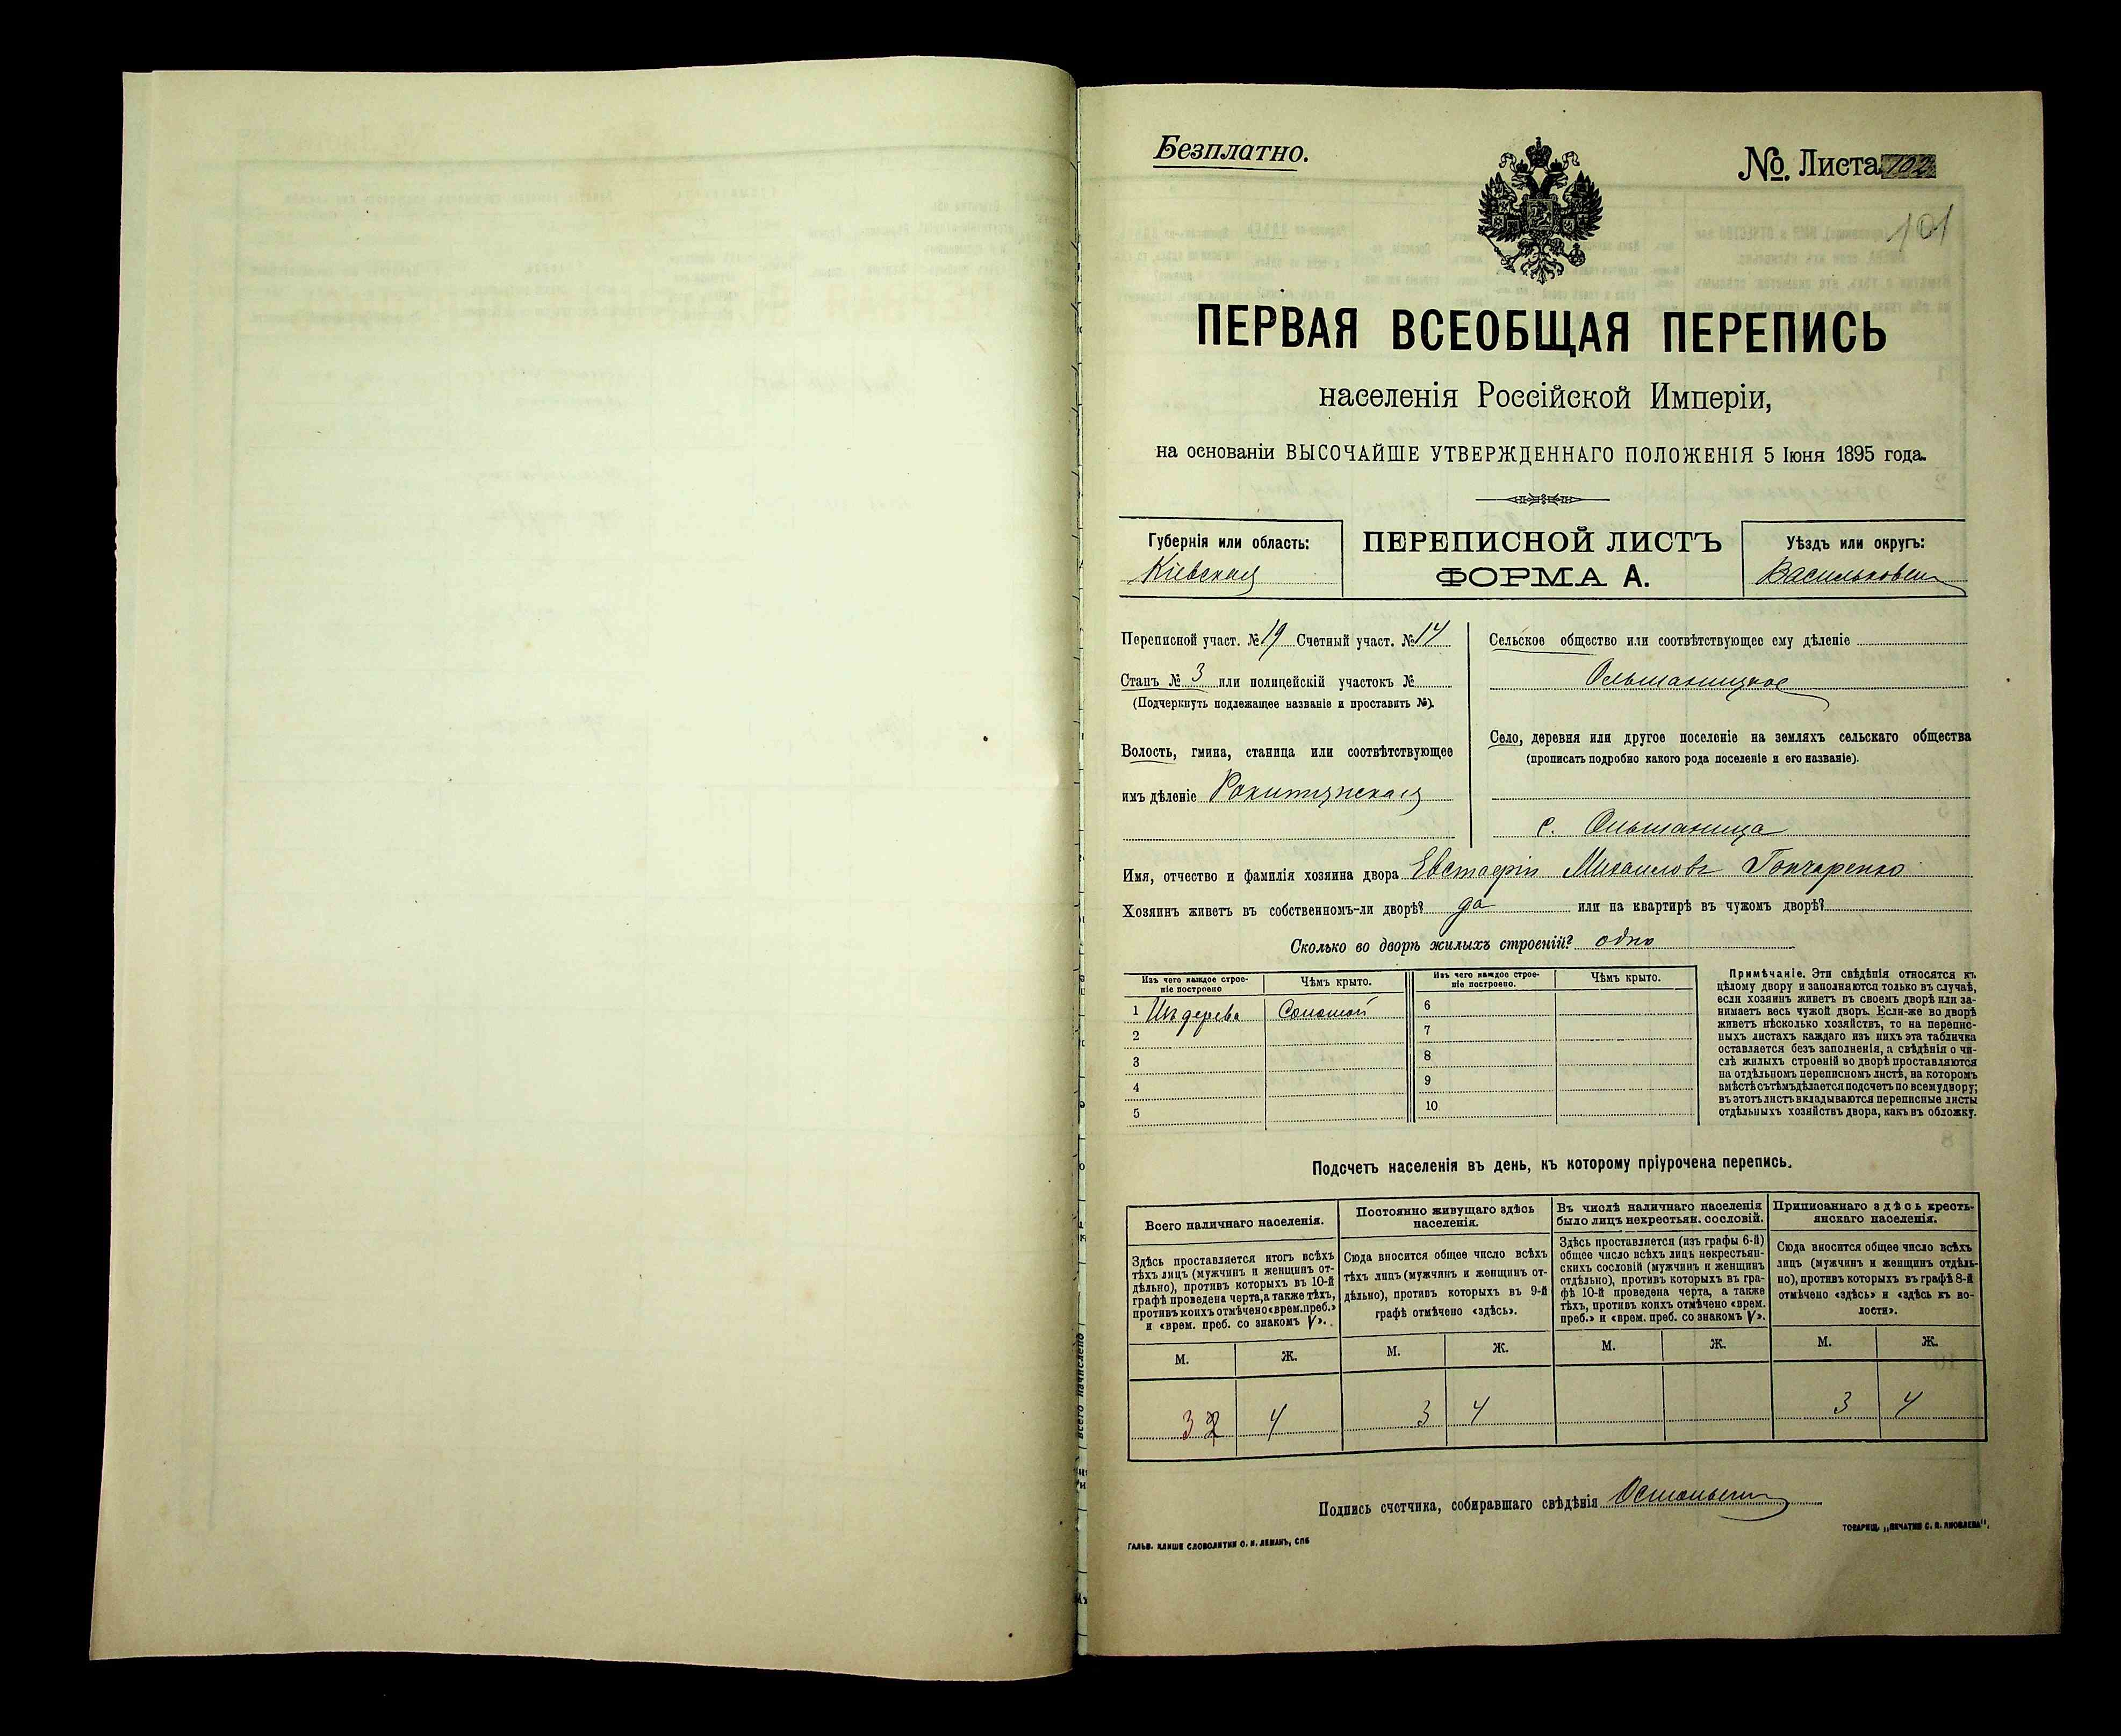 Безплатно.
№ Листа 102
101
ПЕРВАЯ ВСЕОБЩАЯ ПЕРЕПИСЬ
населенія Россійской Имперіи,
на основаніи ВЫСОЧАЙШЕ УТВЕРЖДЕННАГО ПОЛОЖЕНІЯ 5 Іюня 1895 года.
Губернія или область:
Кіевская
ПЕРЕПИСНОЙ ЛИСТЪ
ФОРМА А.
Уѣздъ или округъ:
Васильковск
Переписной участ. № 19 Счетный участ. № 14
Станъ № 3 или полицейскій участокъ №
(Подчеркнуть подлежащее названіе и проставить №).
Волость, гмина, станица или соотвѣтствующее
имъ дѣленіе Рокитянская
Сельское общество или соотвѣтствующее ему дѣленіе
Ольшаницкое
Село, деревня или другое поселеніе на земляхъ сельскаго общества
(прописать подробно какого рода поселеніе и его названіе).
с. Ольшаница
Имя, отчество и фамилія хозяина двора Евстафій Михаиловъ Гончаренко
Хозяинъ живетъ въ собственномъ-ли дворѣ? да или на квартирѣ въ чужомъ дворѣ?
Сколько во дворѣ жилыхъ строеній? одно
Изъ чего каждое строеніе построено
Чѣмъ крыто.
Изъ чего каждое строеніе построено.
Чѣмъ крыто.
1 Изъ дерева Соломой 6
2 7
3 8
4 9
5 10
Примѣчаніе. Эти свѣдѣнія относятся къ
цѣлому двору и заполняются только въ случаѣ,
если хозяинъ живетъ въ своемъ дворѣ или за-
нимаетъ весь чужой дворъ. Если-же во дворѣ
живетъ нѣсколько хозяйствъ, то на перепис-
ныхъ листахъ каждаго изъ нихъ эта табличка
оставляется безъ заполненія, а свѣдѣнія о чи-
слѣ жилыхъ строеній во дворѣ проставляются
на отдѣльномъ переписномъ листѣ, на которомъ
вмѣстѣ съ тѣмъ дѣлается подсчетъ по всему двору;
въ этотъ листъ вкладываются переписные листы
отдѣльныхъ хозяйствъ двора, какъ въ обложку.
Подсчетъ населенія въ день, къ которому пріурочена перепись.
Всего наличнаго населенія.
Здѣсь проставляется итогъ всѣхъ
тѣхъ лицъ (мужчинъ и женщинъ от-
дѣльно), противъ которыхъ въ 10-й
графѣ проведена черта, а также тѣхъ,
противъ коихъ отмѣчено «врем. преб.»
и «врем. преб. со знакомъ V».
Постоянно живущаго здѣсь
населенія.
Сюда вносится общее число всѣхъ
тѣхъ лицъ (мужчинъ и женщинъ от-
дѣльно), противъ которыхъ въ 9-й
графѣ отмѣчено «здѣсь».
Въ числѣ наличнаго населенія
было лицъ некрестьян. сословій.
Здѣсь проставляется (изъ графы 6-й)
общее число всѣхъ лицъ некрестьян-
скихъ сословій (мужчинъ и женщинъ
отдѣльно), противъ которыхъ въ гра-
фѣ 10-й проведена черта, а также
тѣхъ, противъ коихъ отмѣчено «врем.
преб.» и «врем. преб. со знакомъ V».
Приписаннаго здѣсь кресть-
янскаго населенія.
Сюда вносится общее число всѣхъ
лицъ (мужчинъ и женщинъ отдѣль-
но), противъ которыхъ въ графѣ 8-й
отмѣчено «здѣсь» и «здѣсь къ во-
лости».
М. Ж. М. Ж. М. Ж. М. Ж.
3 2 4 3 4 3 4
Подпись счетчика, собиравшаго свѣдѣнія
ГАЛЬВ. КЛИШЕ СЛОВОЛИТНИ О. И. ЛЕМАНЪ, СПБ
ТОВАРИЩ. „ПЕЧАТНЯ С. П. ЯКОВЛЕВА“.